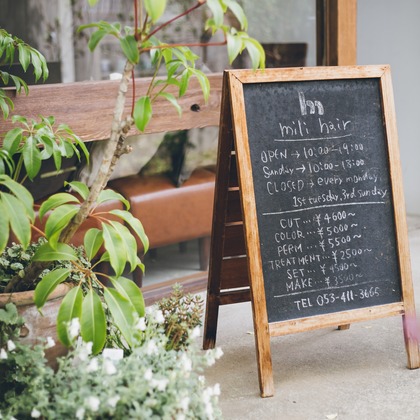 mili hair
OPEN → 10:00-19:00
Sunday → 10:00-18:00
CLOSED → every monday,
1st tuesday, 3rd sunday
CUT ... ¥4600~
COLOR ... ¥5000~
PERM ... ¥5500~
TREATMENT ... ¥2500~
SET ... ¥4500~
MAKE ... ¥3500~
TEL 053-411-3666